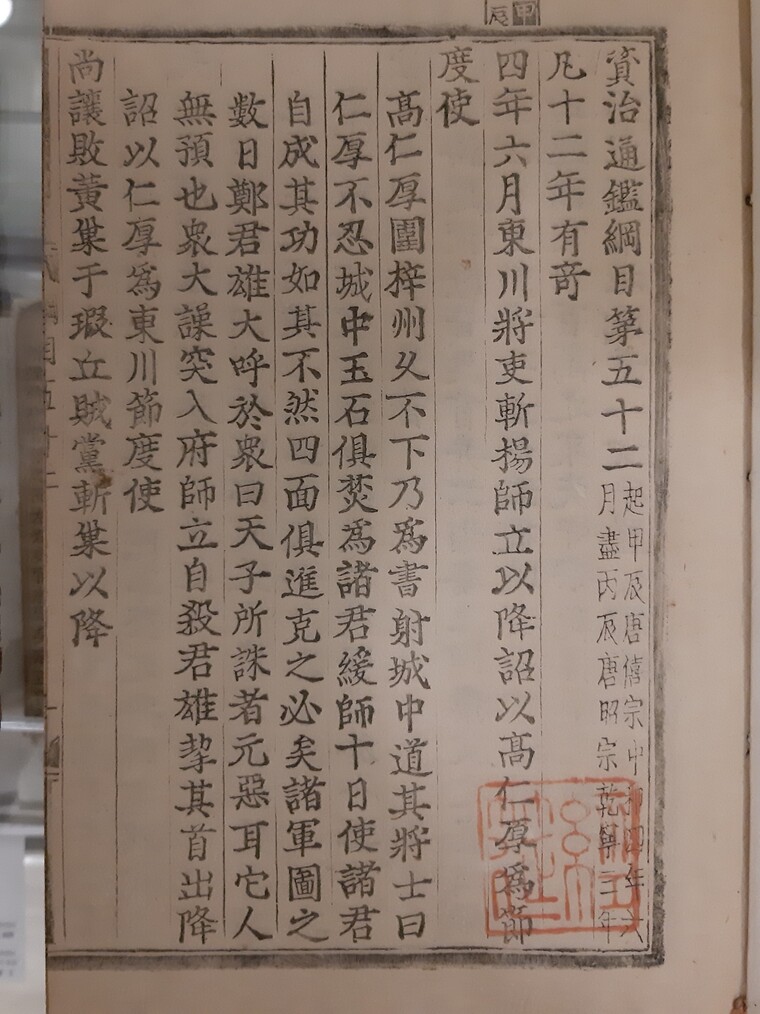 甲辰
資治通鑑綱目第五十二 起甲辰唐僖宗中和四年六
月盡丙辰唐昭宗乾寧三年
凡十二年有奇
四年六月東川將吏斬楊師立以降詔以高仁厚爲節
度使
高仁厚圍梓州久不下乃爲書射城中道其將士曰
仁厚不忍城中玉石俱焚爲諸君緩師十日使諸君
自成其功如其不然四面俱進克之必矣諸軍圖之
數日鄭君雄大呼於衆曰天子所誅者元惡耳它人
無預也衆大譟突入府師立自殺君雄挈其首出降
詔以仁厚爲東川節度使
尚讓敗黃巢于瑕丘賊黨斬巢以降